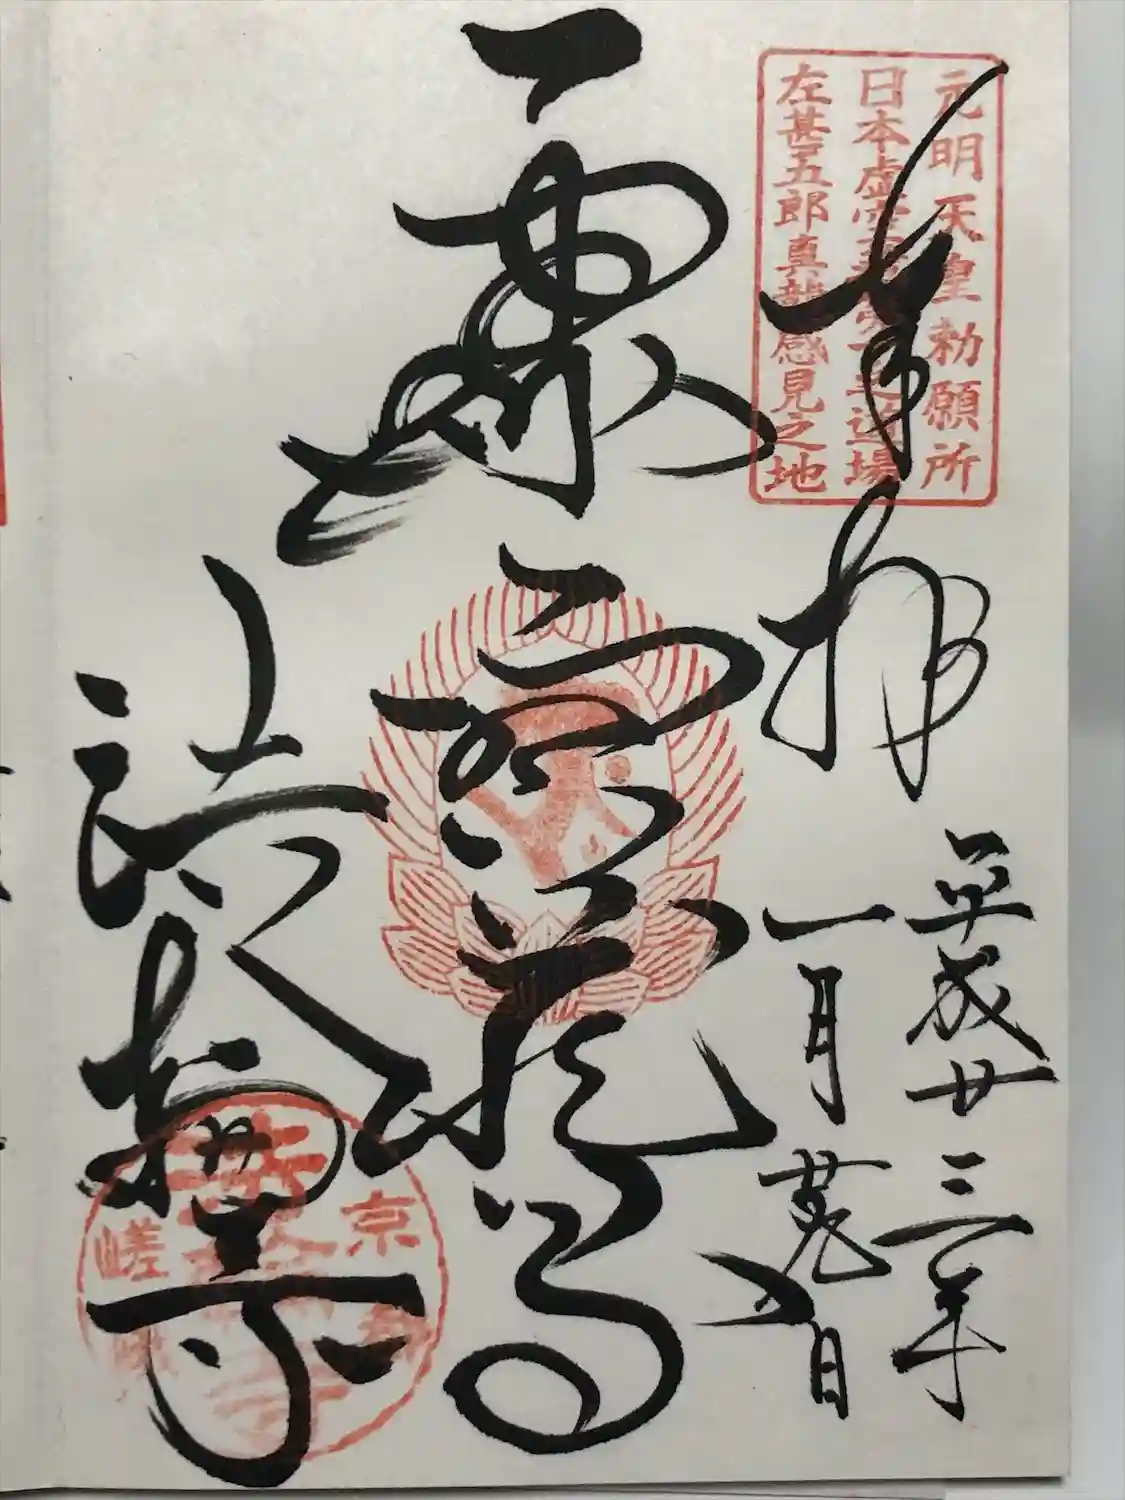 元明天皇勅願所
日本虚空蔵 之道場
左甚五郎真龍感見之地
奉拝
平成廿三年
一月 日
虚空蔵尊
法輪寺
京 嵯